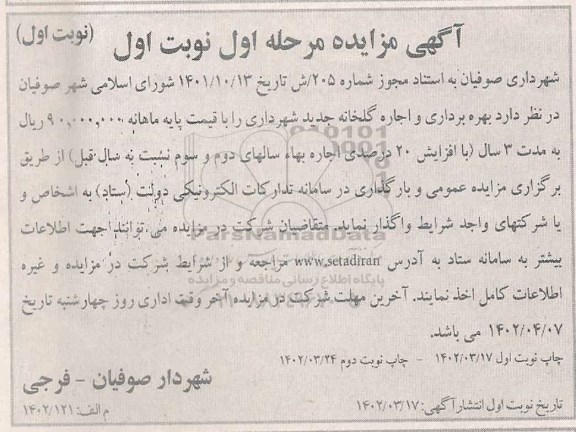 آگهی مزایده مرحله اول نوبت اول
(نوبت اول)
شهرداری صوفیان به استناد مجوز شماره ۲۰۵/ش تاریخ ۱۴۰۱/۱۰/۱۳ شورای اسلامی شهر صوفیان
در نظر دارد بهره برداری و اجاره گلخانه جدید شهرداری را با قیمت پایه ماهانه ۹۰,۰۰۰,۰۰۰ ریال
به مدت ۳ سال (با افزایش ۲۰ درصدی اجاره بهاء سالهای دوم و سوم نسبت به سال قبل) از طریق
برگزاری مزایده عمومی و بارگذاری در سامانه تدارکات الکترونیکی دولت (ستاد) به اشخاص و
یا شرکتهای واجد شرایط واگذار نماید. متقاضیان شرکت در مزایده می توانند جهت اطلاعات
بیشتر به سامانه ستاد به آدرس www.setadiran مراجعه و از شرایط شرکت در مزایده و غیره
اطلاعات کامل اخذ نمایند. آخرین مهلت شرکت در مزایده آخر وقت اداری روز چهارشنبه تاریخ
۱۴۰۲/۰۴/۰۷ می باشد.
چاپ نوبت اول ۱۴۰۲/۰۳/۱۷ - چاپ نوبت دوم ۱۴۰۲/۰۳/۲۴
شهردار صوفیان - فرجی
تاریخ نوبت اول انتشار آگهی: ۱۴۰۲/۰۳/۱۷
م الف: ۱۴۰۲/۱۲۱
ParsNamadData
پایگاه اطلاع رسانی مناقصه و مزایده